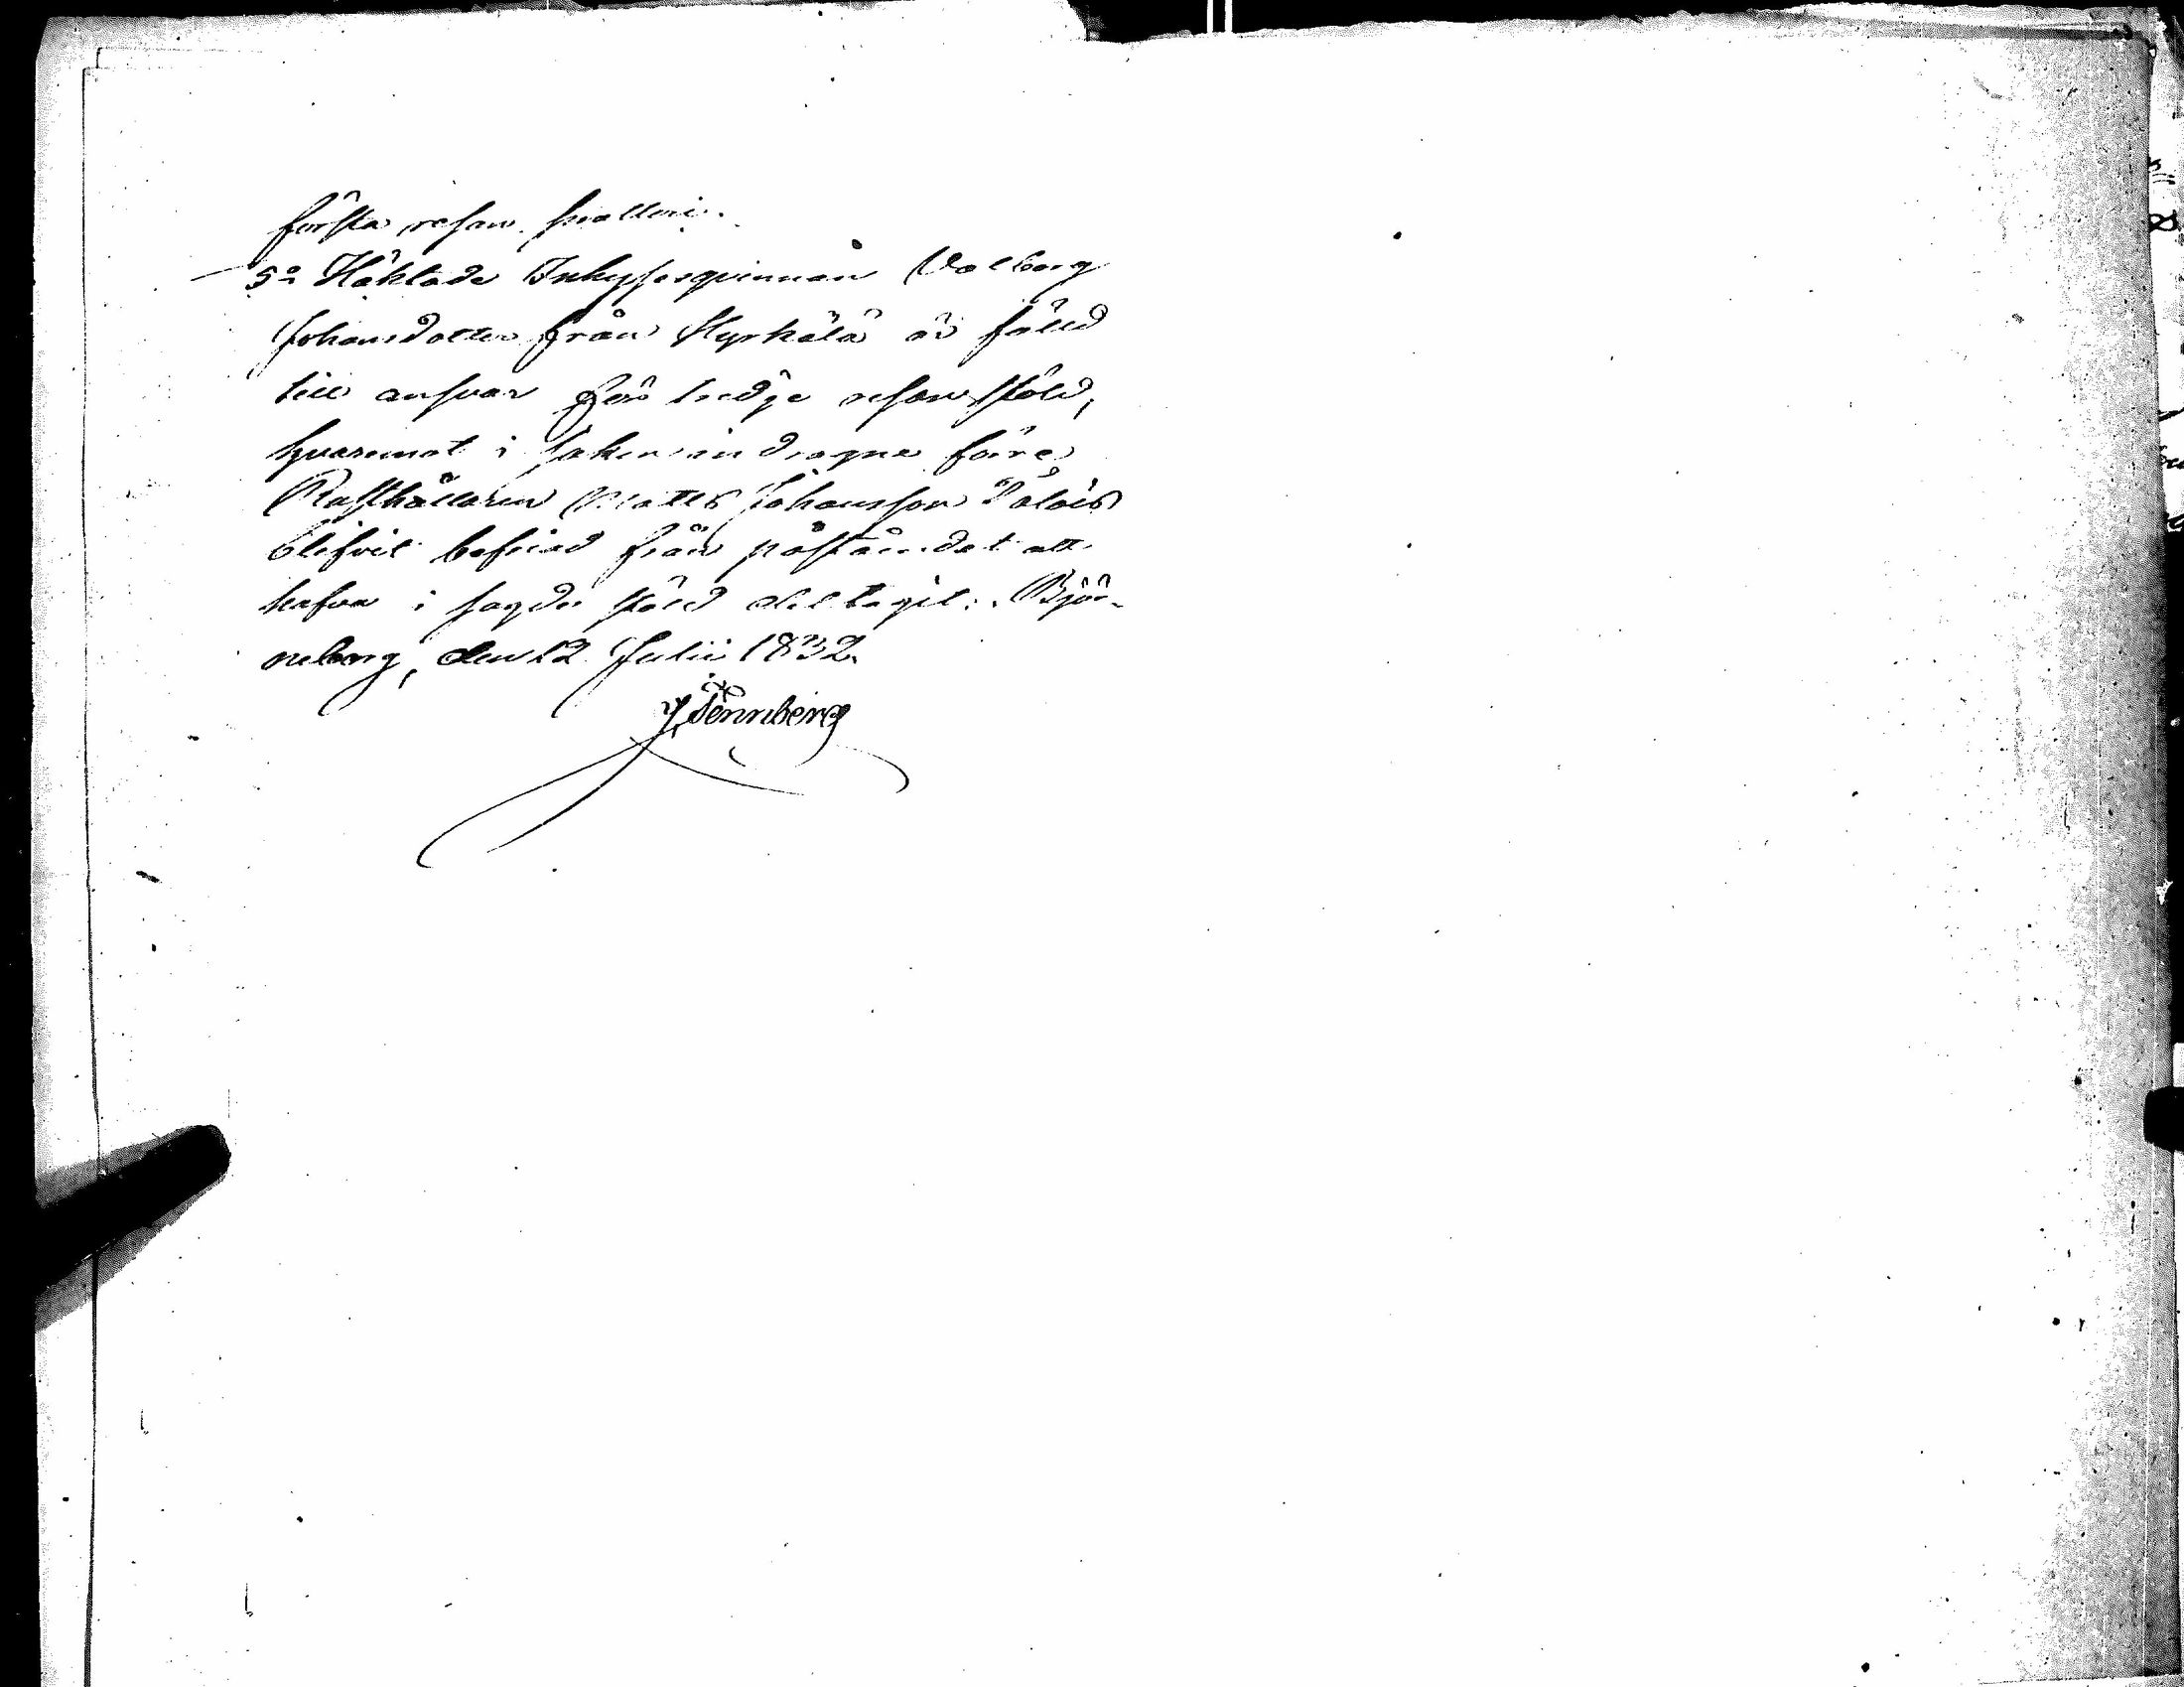 första resan snatteri.
5o Häktade Inhysesqvinnan Valborg
Johansdotter från Hyrkölä är fälld
till ansvar för tredje resan stöld,
hvaremot i saken indragne förre
Rusthållaren Matts Johansson
blifvit befriad från påståendet att
hafva i sagde stöld deltagit. Björ-
neborg, den 12 Julii 1832.
Y. Pennberg